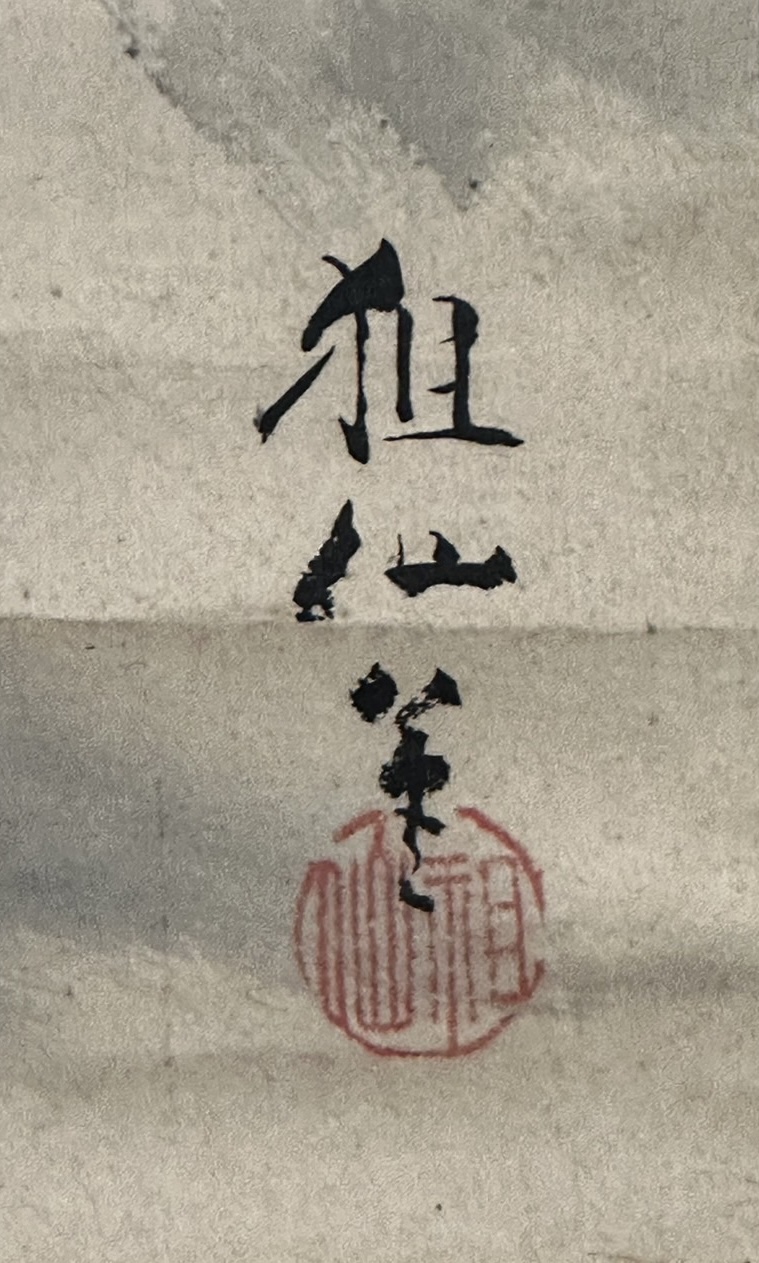 狙仙筆
祖仙